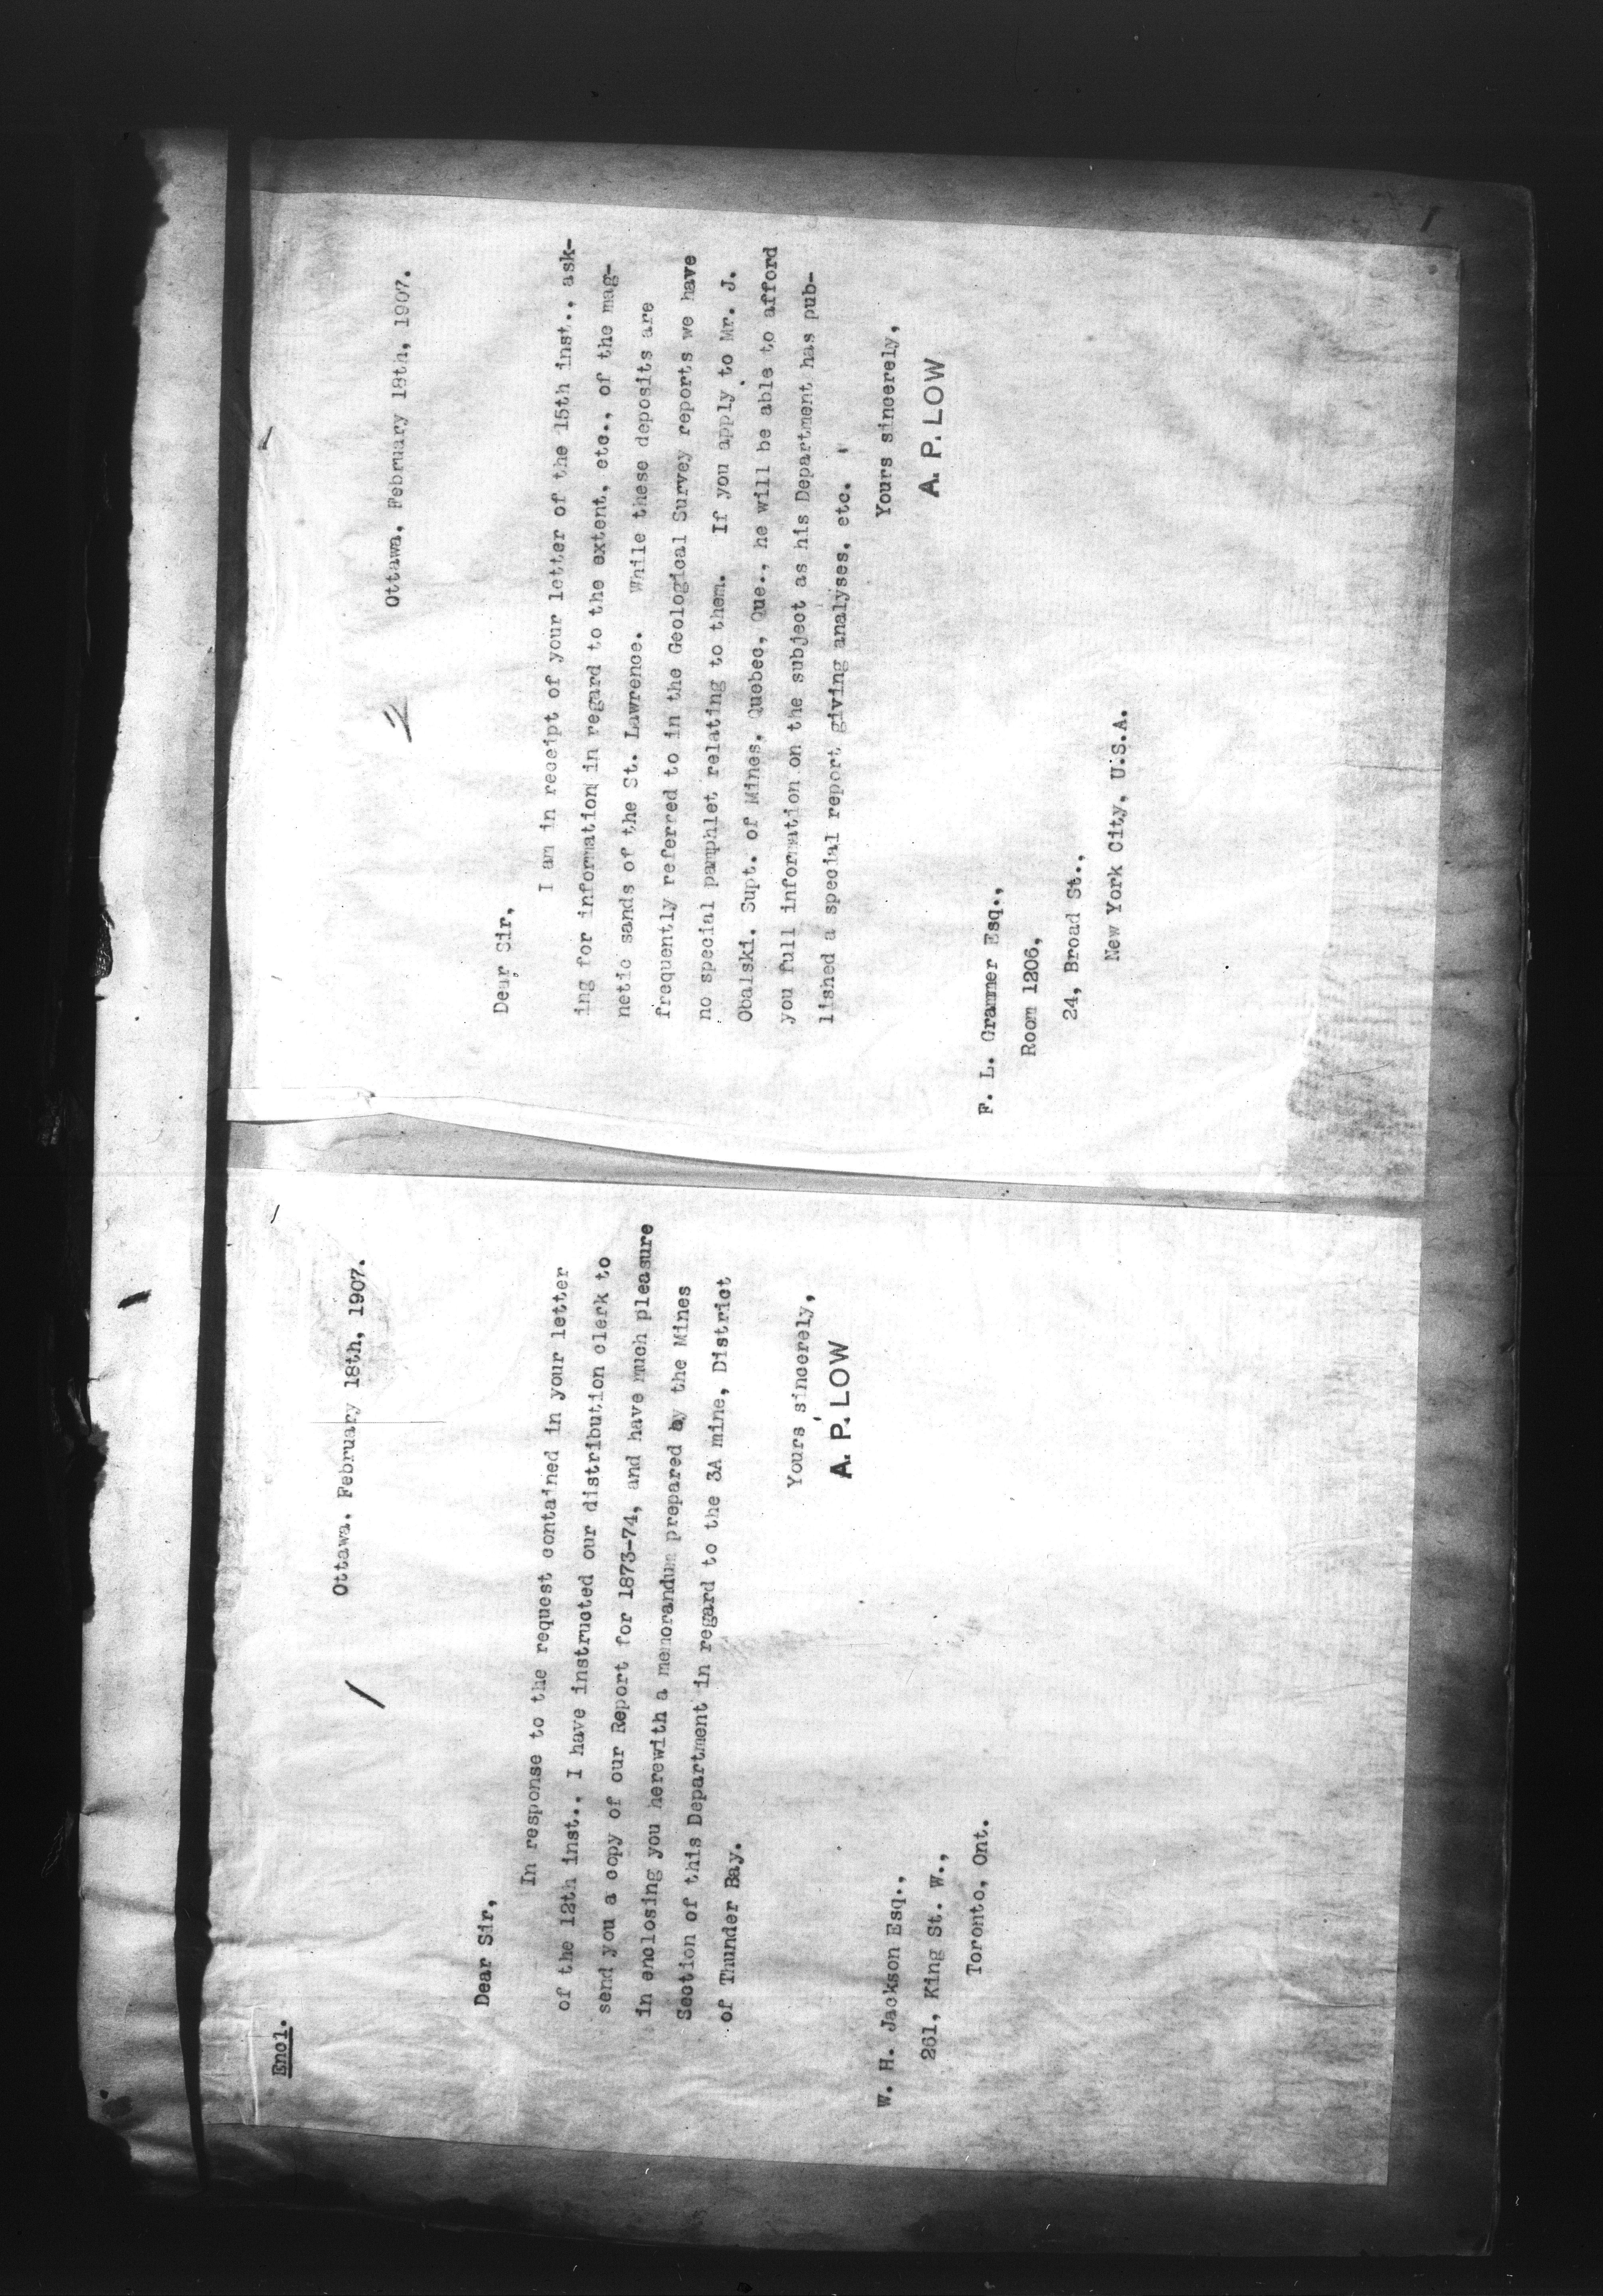 Encl.
1
Ottawa, February 18th, 1907.
Dear Sir,
In response to the request contained in your letter
of the 12th inst., I have instructed our distribution clerk to
send you a copy of our Report for 1873-74, and have much pleasure
in enclosing you herewith a memorandum prepared by the Mines
Section of this Department in regard to the 3A mine, District
of Thunder Bay.
Yours sincerely,
A. P. LOW
W. H. Jackson Esq.,
261, King St. W.,
Toronto, Ont.
1
2
Ottawa, February 18th, 1907.
Dear Sir,
I am in receipt of your letter of the 15th inst., ask-
ing for information in regard to the extent, etc., of the mag-
netic sands of the St. Lawrence. While these deposits are
frequently referred to in the Geological Survey reports we have
no special pamphlet relating to them. If you apply to Mr. J.
Obalski, Supt. of Mines, Quebec, Que., he will be able to afford
you full information on the subject as his Department has pub-
lished a special report giving analyses, etc.
Yours sincerely,
A. P. LOW
F. L. Grammer Esq.,
Room 1206,
24, Broad St.,
New York City, U.S.A.